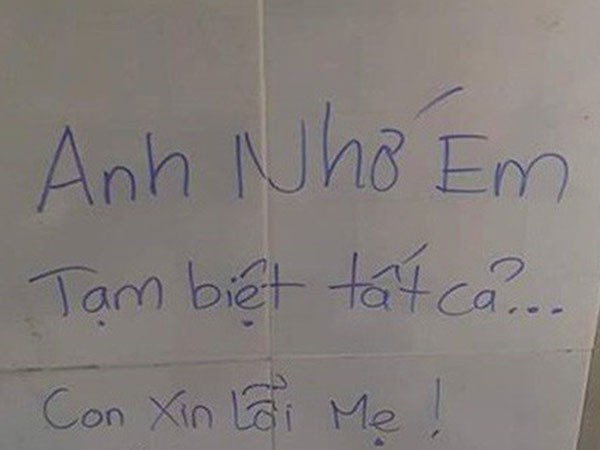 Anh Nhớ Em
Tạm biệt tất cả...
Con xin lỗi Mẹ!